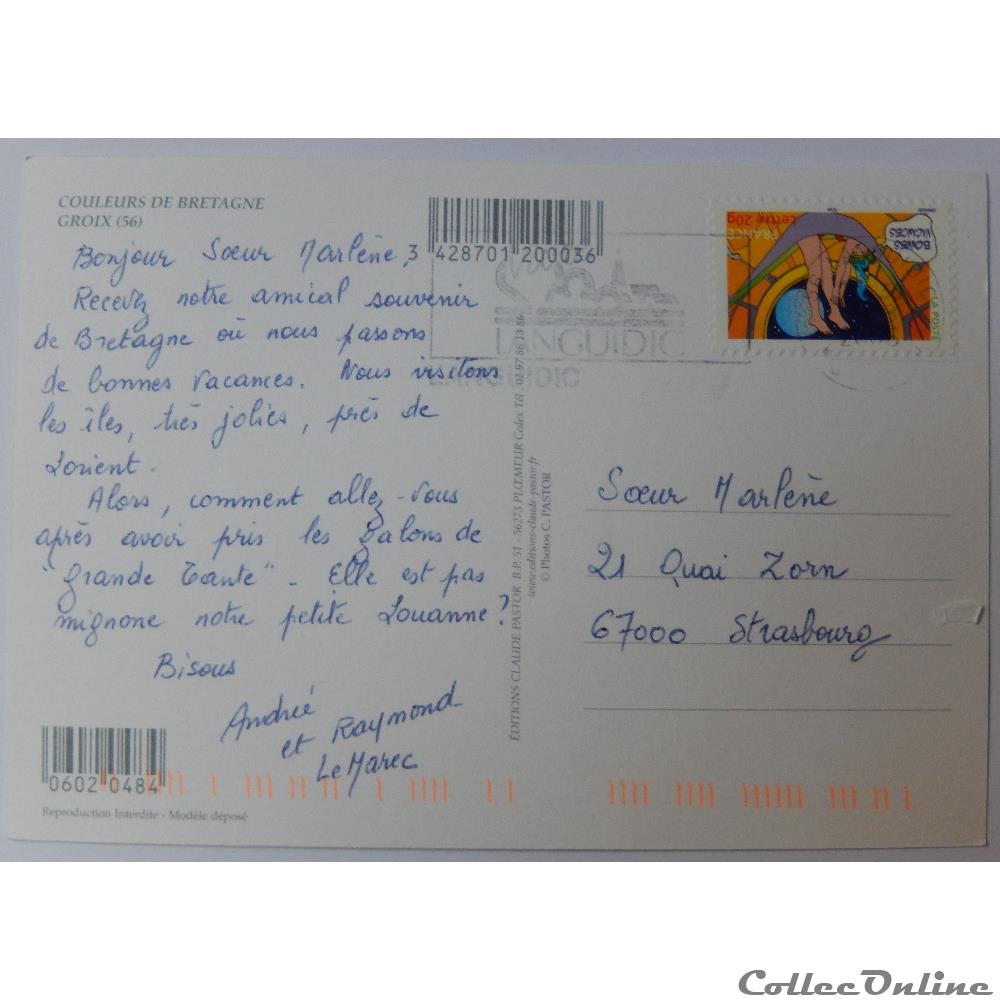 COULEURS DE BRETAGNE
GROIX (56)
Bonjour Sœur Marlène,
Recevez notre amical souvenir
de Bretagne où nous passons
de bonnes vacances. Nous visitons
les îles, très jolies, près de
Lorient.
Alors, comment allez-vous
après avoir pris les galons de
"grande tante". Elle est pas
mignone notre petite Louanne?
Bisous
Andrée
et Raymond
Le Marec
06020484
Reproduction Interdite - Modèle déposé
3 428701 200036
LANGUIDIC
LANGUIDIC
ÉDITIONS CLAUDE PASTOR B.P. 51 - 56273 PLŒMEUR Cedex Tél. 02 97 86 13 86
www.editions-claude-pastor.fr
© Photos C. PASTOR
BONNES
VACANCES
FRANCE
Lettre 20g
LA POSTE
Sœur Marlène
21 Quai Zorn
67000 Strasbourg
CollecOnline